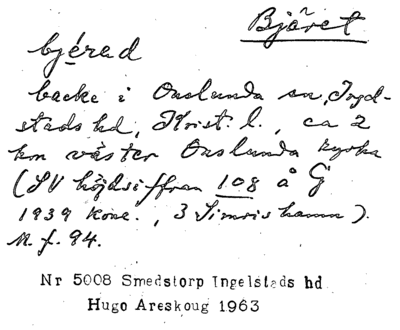 Bjäret
bjérad
backe i Onslunda sn, Ingel-
stads hd, Krist. l., ca 2
km väster Onslunda kyrka
(SV höjdsiffran 108 å G
1939 konc., 3 Simrishamn).
M. f. 94.
Nr 5008 Smedstorp Ingelstads hd
Hugo Areskoug 1963